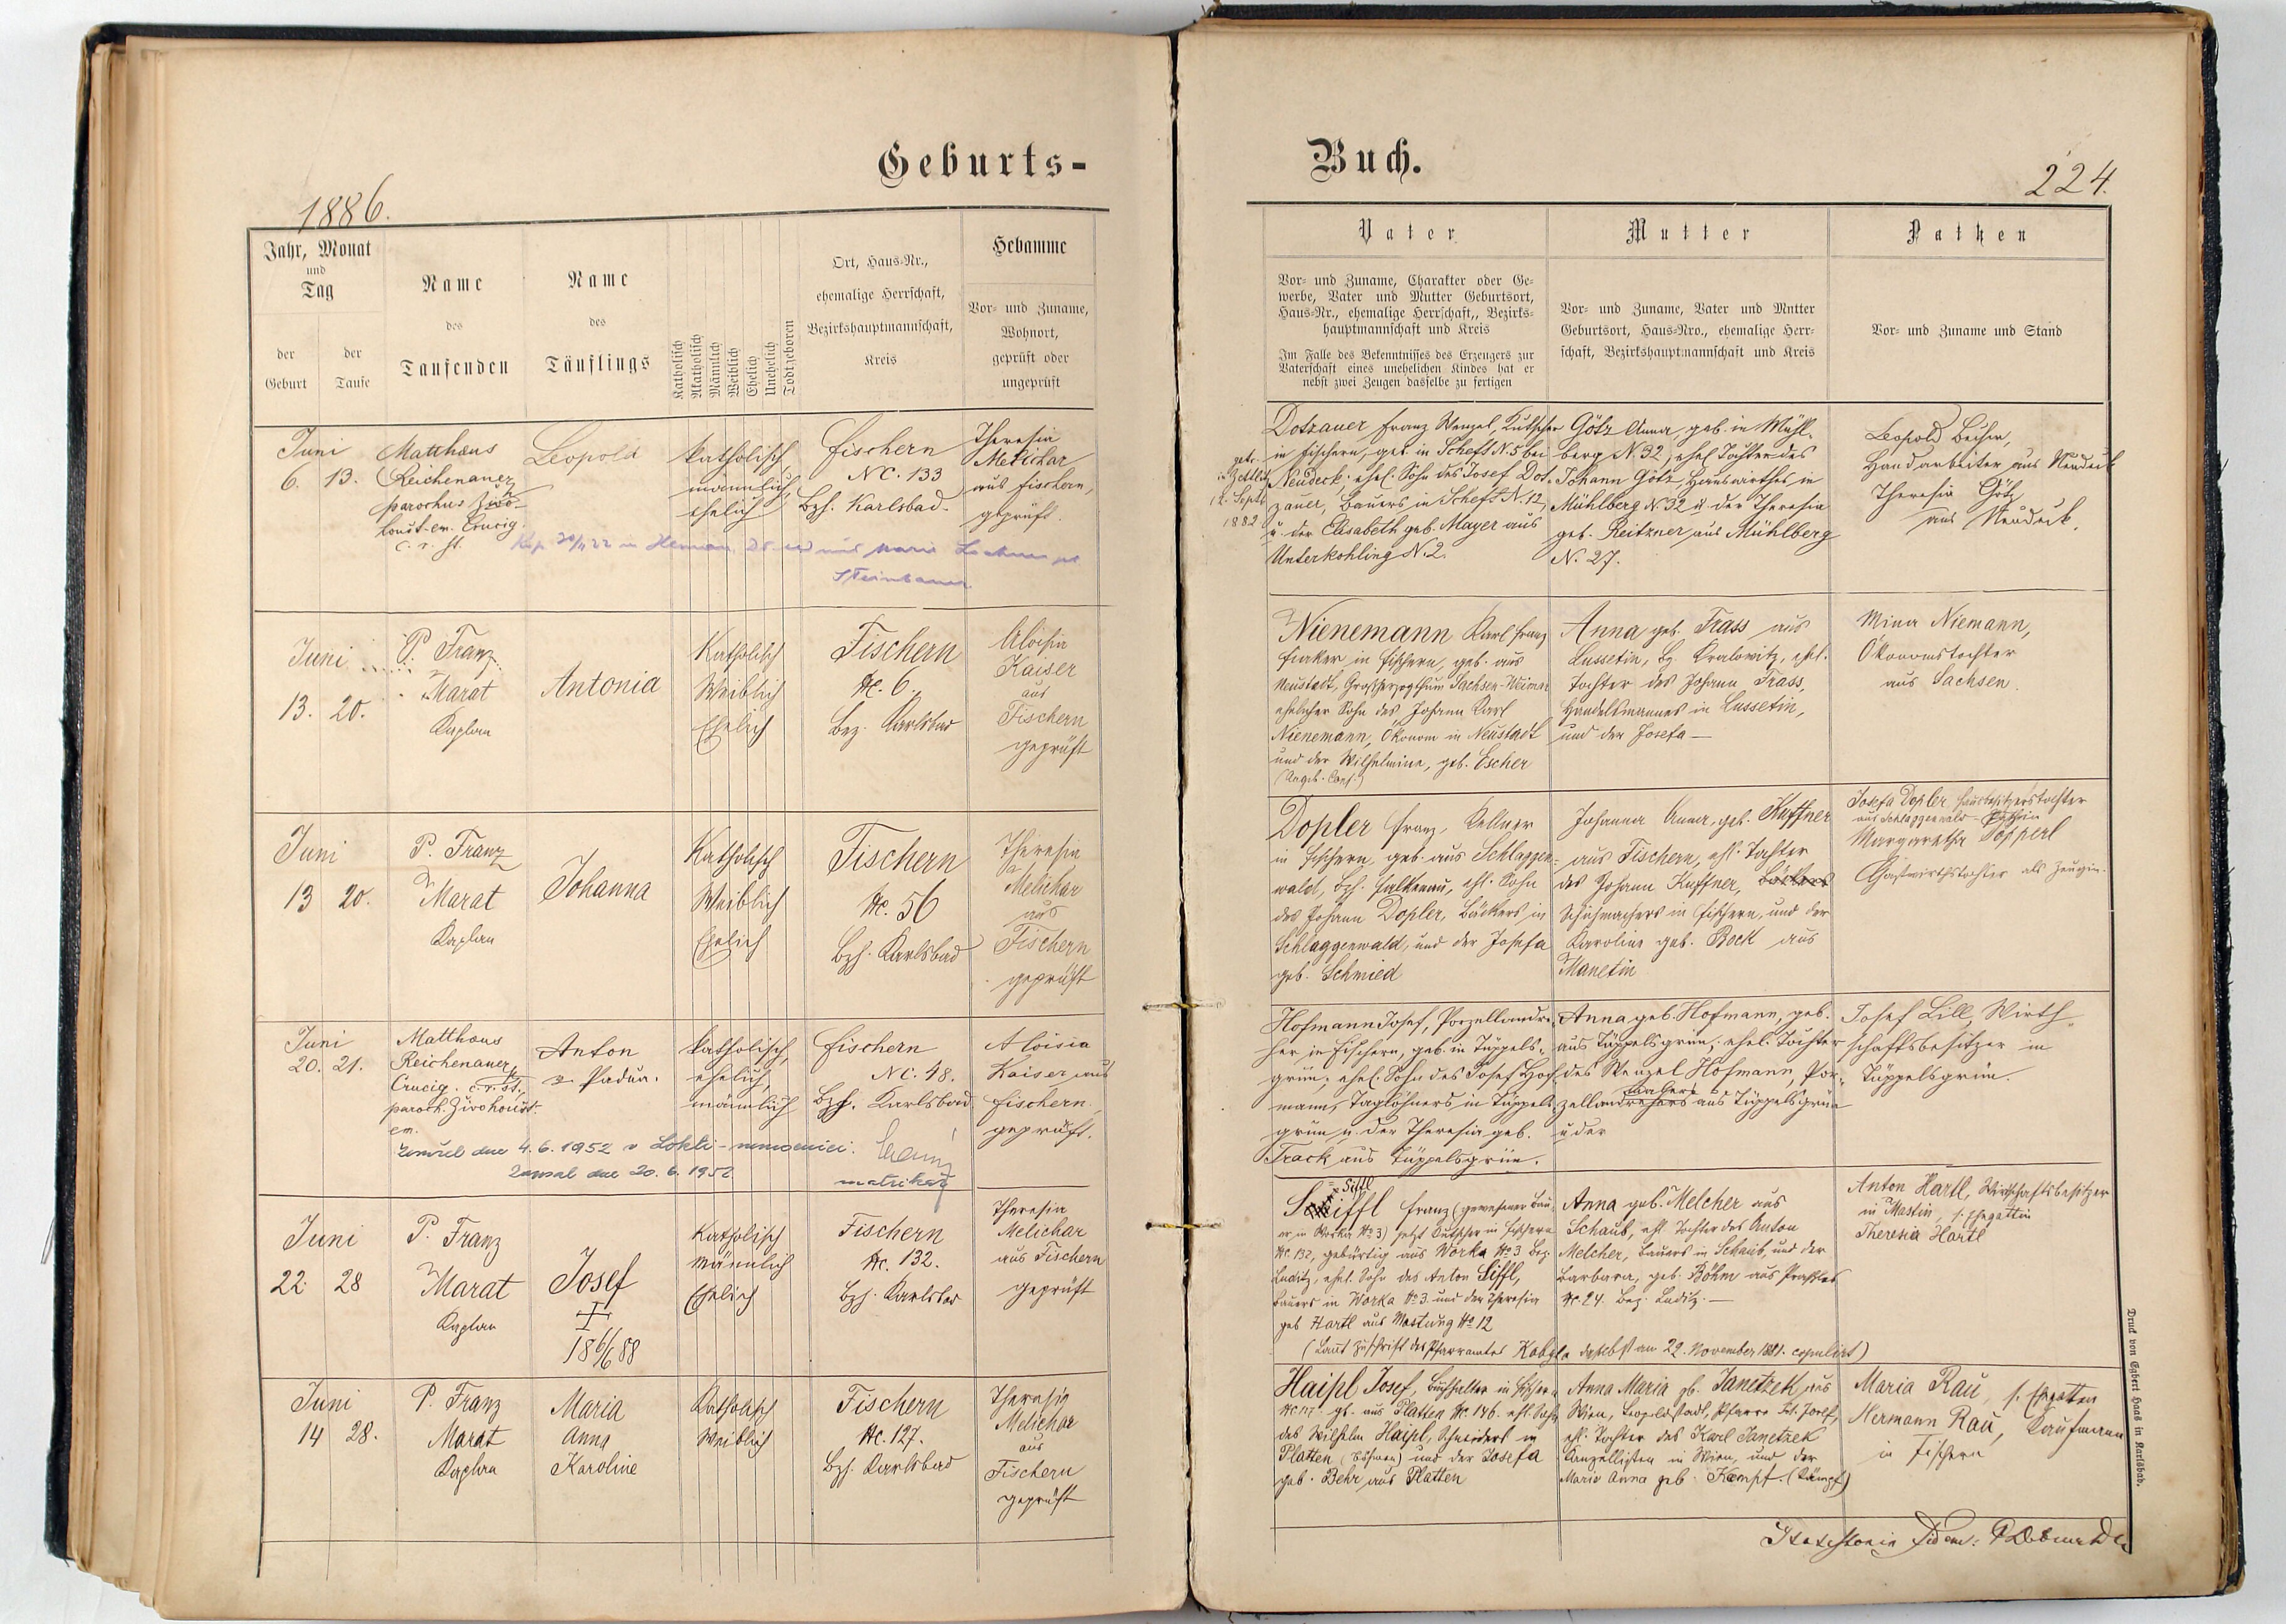 Geburts-
1886.
Jahr, Monat
und
Tag
der
Geburt
der
Taufe
Name
des
Taufenden
Name
des
Täuflings
Katholisch
Akatholisch
Männlich
Weiblich
Ehelich
Unehelich
Todtgeboren
Ort, Haus-Nr.,
ehemalige Herrschaft,
Bezirkshauptmannschaft,
Kreis
Hebamme
Vor- und Zuname,
Wohnort,
geprüft oder
ungeprüft
Juni
6. 13.
Matthäus
Reichenauer
parochus
em. Crucig.
Leopold
katholisch,
männlich,
ehelich
Fischern
NC. 133
Bzh. Karlsbad.
Theresia
Melichar
aus Fischern,
geprüft.
Steinbauer
Juni
13. 20.
P. Franz
Marat
Kaplan
Antonia
Katholisch
Weiblich
Ehelich
Fischern
Nc. 6.
Bez. Karlsbad
Aloisia
Kaiser
aus
Fischern
geprüft
Juni
13 20.
P. Franz
Marat
Kaplan
Johanna
Katholisch
Weiblich
Ehelich
Fischern
Nc. 56
Bzh. Karlsbad
Theresia
Melichar
aus
Fischern
geprüft
Juni
20. 21.
Matthäus
Reichenauer
Crucig. c. r. st.,
paroch. Živohoust.
em.
Anton
v. Padua.
katholisch,
ehelich,
männlich
Fischern
NC. 48.
Bzh. Karlsbad
Aloisia
Kaiser aus
Fischern,
geprüft.
Zemřel dne 4.6.1952 v Lokti - nemocnici.
Zapsal dne 20.6.1952.
matrikář
Juni
22. 28
P. Franz
Marat
Kaplan
Josef
†
18 6/6 88
Katholisch
Männlich
Ehelich
Fischern
Nc. 132.
Bzh. Karlsbad
Theresia
Melichar
aus Fischern
geprüft
Juni
14 28.
P. Franz
Marat
Kaplan
Maria
Anna
Karoline
Katholisch
Weiblich
Fischern
Nc. 127.
Bzh. Karlsbad
Theresia
Melichar
aus
Fischern
geprüft
Buch.
224.
Vater
Vor- und Zuname, Charakter oder Ge-
werbe, Vater und Mutter Geburtsort,
Haus-Nr., ehemalige Herrschaft,, Bezirks-
hauptmannschaft und Kreis
Im Falle des Bekenntnisses des Erzeugers zur
Vaterschaft eines unehelichen Kindes hat er
nebst zwei Zeugen dasselbe zu fertigen
Mutter
Vor- und Zuname, Vater und Mutter
Geburtsort, Haus-Nro., ehemalige Herr-
schaft, Bezirkshauptmannschaft und Kreis
Pathen
Vor- und Zuname und Stand
1882
Dotzauer Franz Wenzel, Kutscher
in Fischern, geb. in Scheft N. 5 bei
Neudeck, ehel. Sohn des Josef Dot-
zauer, Bauers in Scheft N. 12,
u. der Elisabeth geb. Mayer aus
Unterkohling N. 2.
Götz Anna, geb. in Mühl-
berg N. 32, ehel. Tochter des
Johann Götz, Hauswirthes in
Mühlberg N. 32 u. der Theresia
geb. Reitzner aus Mühlberg
N. 27.
Leopold
Handarbeiter aus Neudeck
Theresia Götz
aus Neudeck.
Nienemann Karl Franz
Fiaker in Fischern, geb. aus
Neustadt, Großherzogthum Sachsen-Weimar
ehelicher Sohn des Johann Karl
Nienemann, Ökonom in Neustadt
und der Wilhelmine, geb. Escher
Anna geb. Trass aus
Lussetin, Bz. Kralowitz, ehl.
Tochter des Johann Trass,
Handelsmannes in Lussetin,
und der Josefa —
Mina Niemann,
Ökonomstochter
aus Sachsen.
Dopler Franz, Kellner
in Fischern, geb. aus Schlaggen-
wald, Bzh. Falkenau, ehl. Sohn
des Johann Dopler, Bäckers in
Schlaggenwald, und der Josefa
geb. Schmied
Johanna Anna, geb. Kuffner
aus Fischern, ehl. Tochter
des Johann Kuffner, Bäckers
Schuhmachers in Fischern, und der
Karoline geb. Bock aus
Manetin
Josefa Dopler Hausbesitzerstochter
aus Schlaggenwald Pathin
Margaretha Töpperl
Gastwirthstochter als Zeugin.
Hofmann Josef, Porzellandre-
her in Fischern, geb. in Tüppels-
grün, ehel. Sohn des Josef Hof-
mann, Taglöhners in Tüppels-
grün u. der Theresia geb.
Track aus Tüppelsgrün.
Anna geb. Hofmann, geb.
aus Tüppelsgrün, ehel. Tochter
des Wenzel Hofmann, Por-
zellandrehers aus Tüppelsgrün
u der
Josef Lill, Wirth-
schaftsbesitzer in
Tüppelsgrün.
Siffl
Siffl Franz (gewesener Bau-
er in Worka No 3) jetzt Kutscher in Fischern
Nc. 132, gebürtig aus Worka No 3 Bez.
Luditz, ehel. Sohn des Anton Siffl,
Bauers in Worka No 3 und der Theresia
geb Hartl aus Mastung No 12
Anna geb. Melcher aus
Schaub, ehl. Tochter des Anton
Melcher, Bauers in Schaub, und der
Barbara, geb. Böhm aus
Nc. 24. Bez. Luditz. —
(Laut Zuschrift des Pfarramtes Kobyla daselbst am 22. November 1881. copulirt)
Anton Hartl, Wirthschaftsbesitzer
in Mastin, s. Ehegattin
Theresia Hartl
Haipl Josef, Buchhalter in Fischern
Nc 127. gb. aus Platten Nc. 136. ehl. Sohn
des Wilhelm Haipl, Schneiders in
Platten (Böhmen) und der Josefa
geb. Behr aus Platten
Anna Maria gb. Janetzek aus
Wien, Leopoldstadt, Pfarre Set. Josef,
ehl. Tochter des Karl Janetzek
Kanzellisten in Wien, und der
Maria Anna geb. Kempf. (Kämpf)
Maria Rau, s. Ehegatten
Hermann Rau, Kaufmann
in Fischern
Druck von Egbert Haas in Karlsbad.